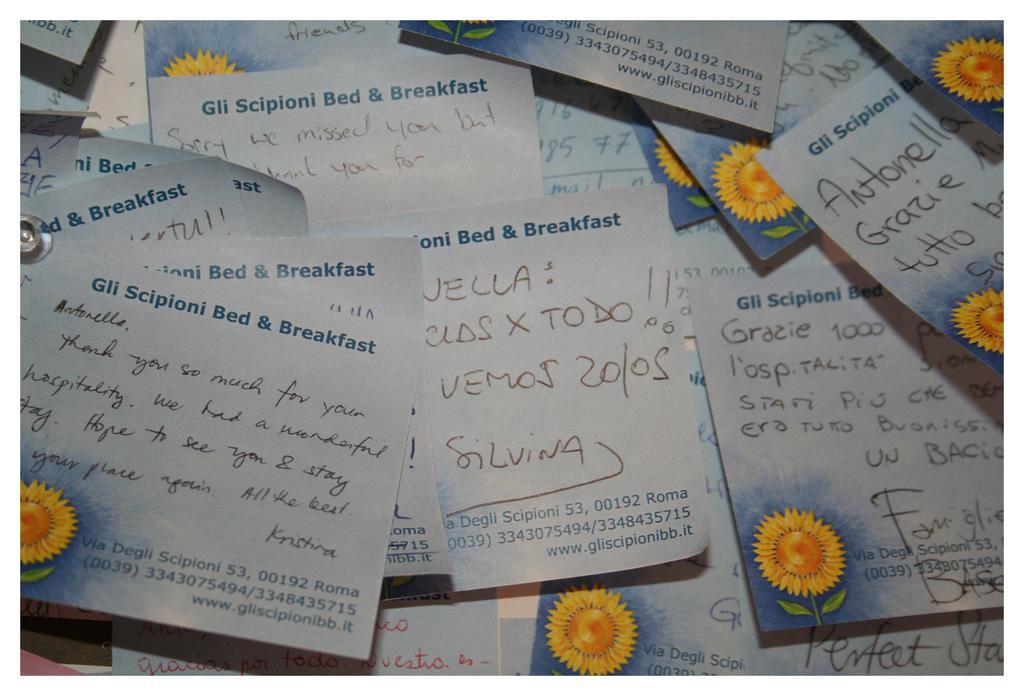 ibb.it
friends
Gli Scipioni Bed & Breakfast
Sorry we missed you but
you for
Degli Scipioni 53, 00192 Roma
(0039) 3343075494/3348435715
www.gliscipionibb.it
85 77
Gli Scipioni Be
Antonella
Grazie
tutto
ni Bed
ast
d & Breakfast
ioni Bed & Breakfast
Gli Scipioni Bed & Breakfast
Antonella,
thank you so much for your
hospitality. We had a wonderful
stay. Hope to see you & stay
your place again. All the best.
Kristina
Via Degli Scipioni 53, 00192 Roma
(0039) 3343075494/3348435715
www.gliscipionibb.it
ioni Bed & Breakfast
NELLA:
X TODO !!
VEMOS 20/05
SILVINA
a Degli Scipioni 53, 00192 Roma
0039) 3343075494/3348435715
www.gliscipionibb.it
oma
5715
ibb.it
Gli Scipioni Bed
Grazie 1000
l'OSPITALITA'
STATI PIU CHE
ERA TUTTO BUONISSI
UN BACIO
Famiglia
Via Degli Scipioni 53,
(0039) 3343075494
gracias por todo. Nuestra es-
Via Degli Scipi
(0039)
Perfect Sta